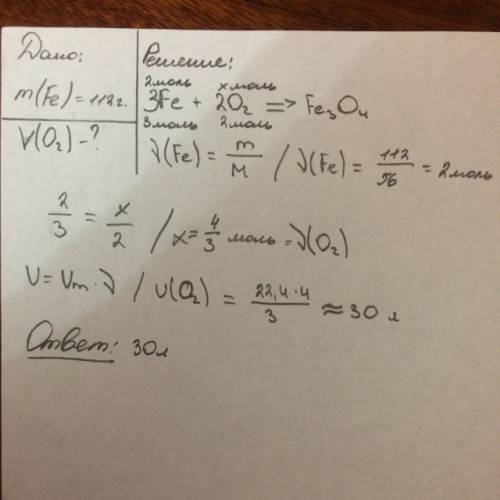 Дано:
m(Fe) = 112 г.
V(O₂) - ?
Решение:
2 моль x моль
3Fe + 2O₂ => Fe₃O₄
3 моль 2 моль
ν(Fe) = m/M / ν(Fe) = 112/56 = 2 моль
2/3 = x/2 / x = 4/3 моль = ν(O₂)
V = Vm · ν / V(O₂) = 22,4·4/3 ≈ 30 л
Ответ: 30л